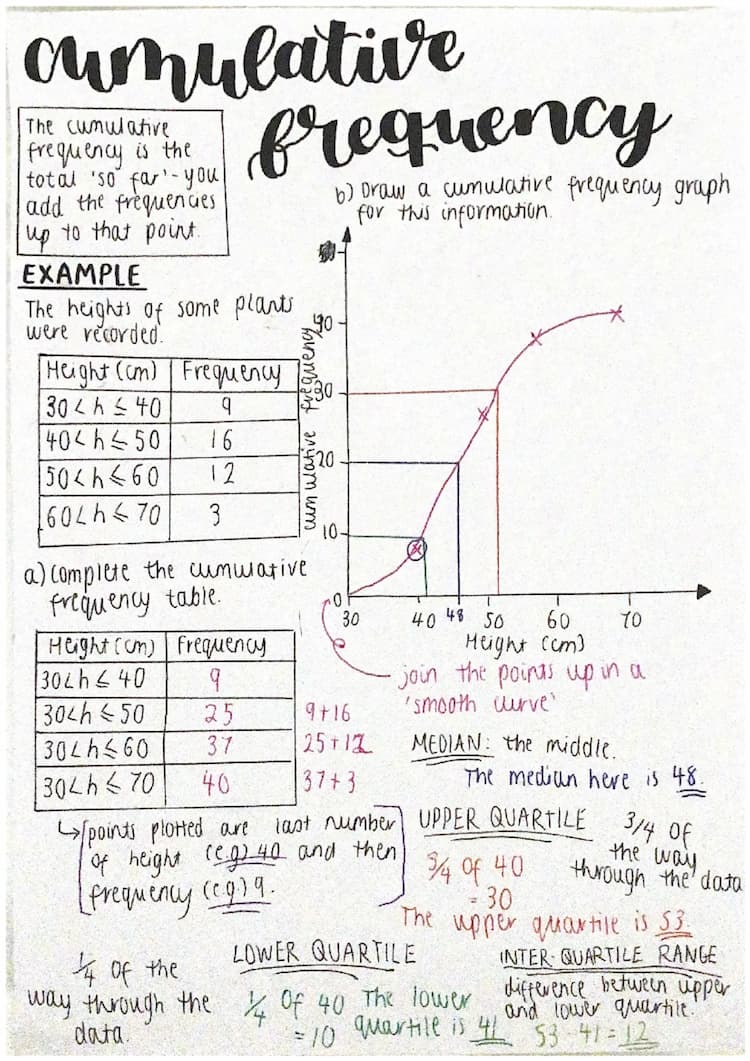 cumulative
frequency
The cumulative
frequency is the
total 'so far' - you
add the frequencies
up to that point.
EXAMPLE
The heights of some plants
were recorded.
Height (cm) Frequency
30 < h ≤ 40 9
40 < h ≤ 50 16
50 < h ≤ 60 12
60 < h ≤ 70 3
a) Complete the cumulative
frequency table.
Height (cm) Frequency
30 < h ≤ 40 9
30 < h ≤ 50 25 9+16
30 < h ≤ 60 37 25+12
30 < h ≤ 70 40 37+3
points plotted are last number
of height (e.g) 40 and then
frequency (e.g) 9.
b) Draw a cumulative frequency graph
for this information.
cumulative frequency
30
20
10
0
30 40 48 50 60 70
Height (cm)
join the points up in a
'smooth curve'
MEDIAN: the middle.
The median here is 48.
UPPER QUARTILE 3/4 of
the way
through the data
3/4 of 40
= 30
The upper quartile is 53.
LOWER QUARTILE
1/4 of the
way through the
data.
1/4 of 40
= 10
The lower
quartile is 41
INTER-QUARTILE RANGE
difference between upper
and lower quartile.
53 - 41 = 12